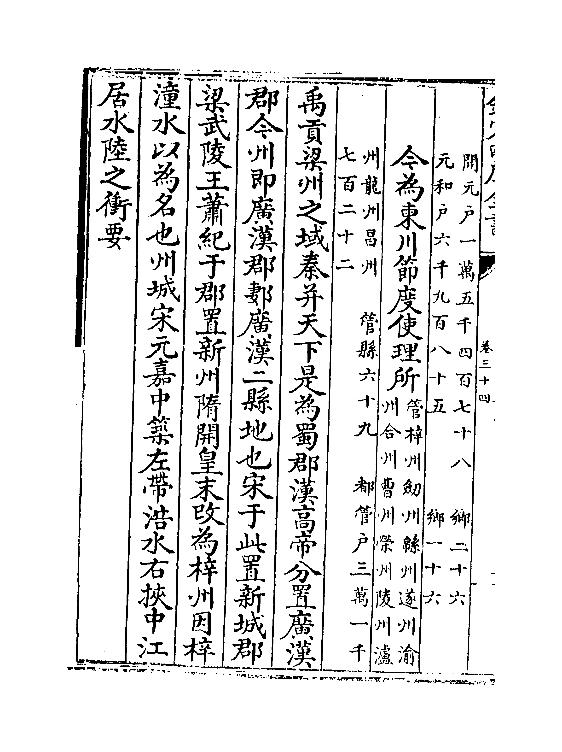 卷三十四
開元戶一萬五千四百七十八 鄉二十六
元和戶六千九百八十五 鄉一十六
今為東川節度使理所 管梓州劔州緜州遂州渝
州合州曹州榮州陵州瀘
州龍州昌州 管縣六十九 都管戶三萬一千
七百二十二
禹貢梁州之域秦并天下是為蜀郡漢高帝分置廣漢
郡今州即廣漢郡郪廣漢二縣地也宋于此置新城郡
梁武陵王蕭紀于郡置新州隋開皇末改為梓州因梓
潼水以為名也州城宋元嘉中築左帶浩水右挾中江
居水陸之衝要